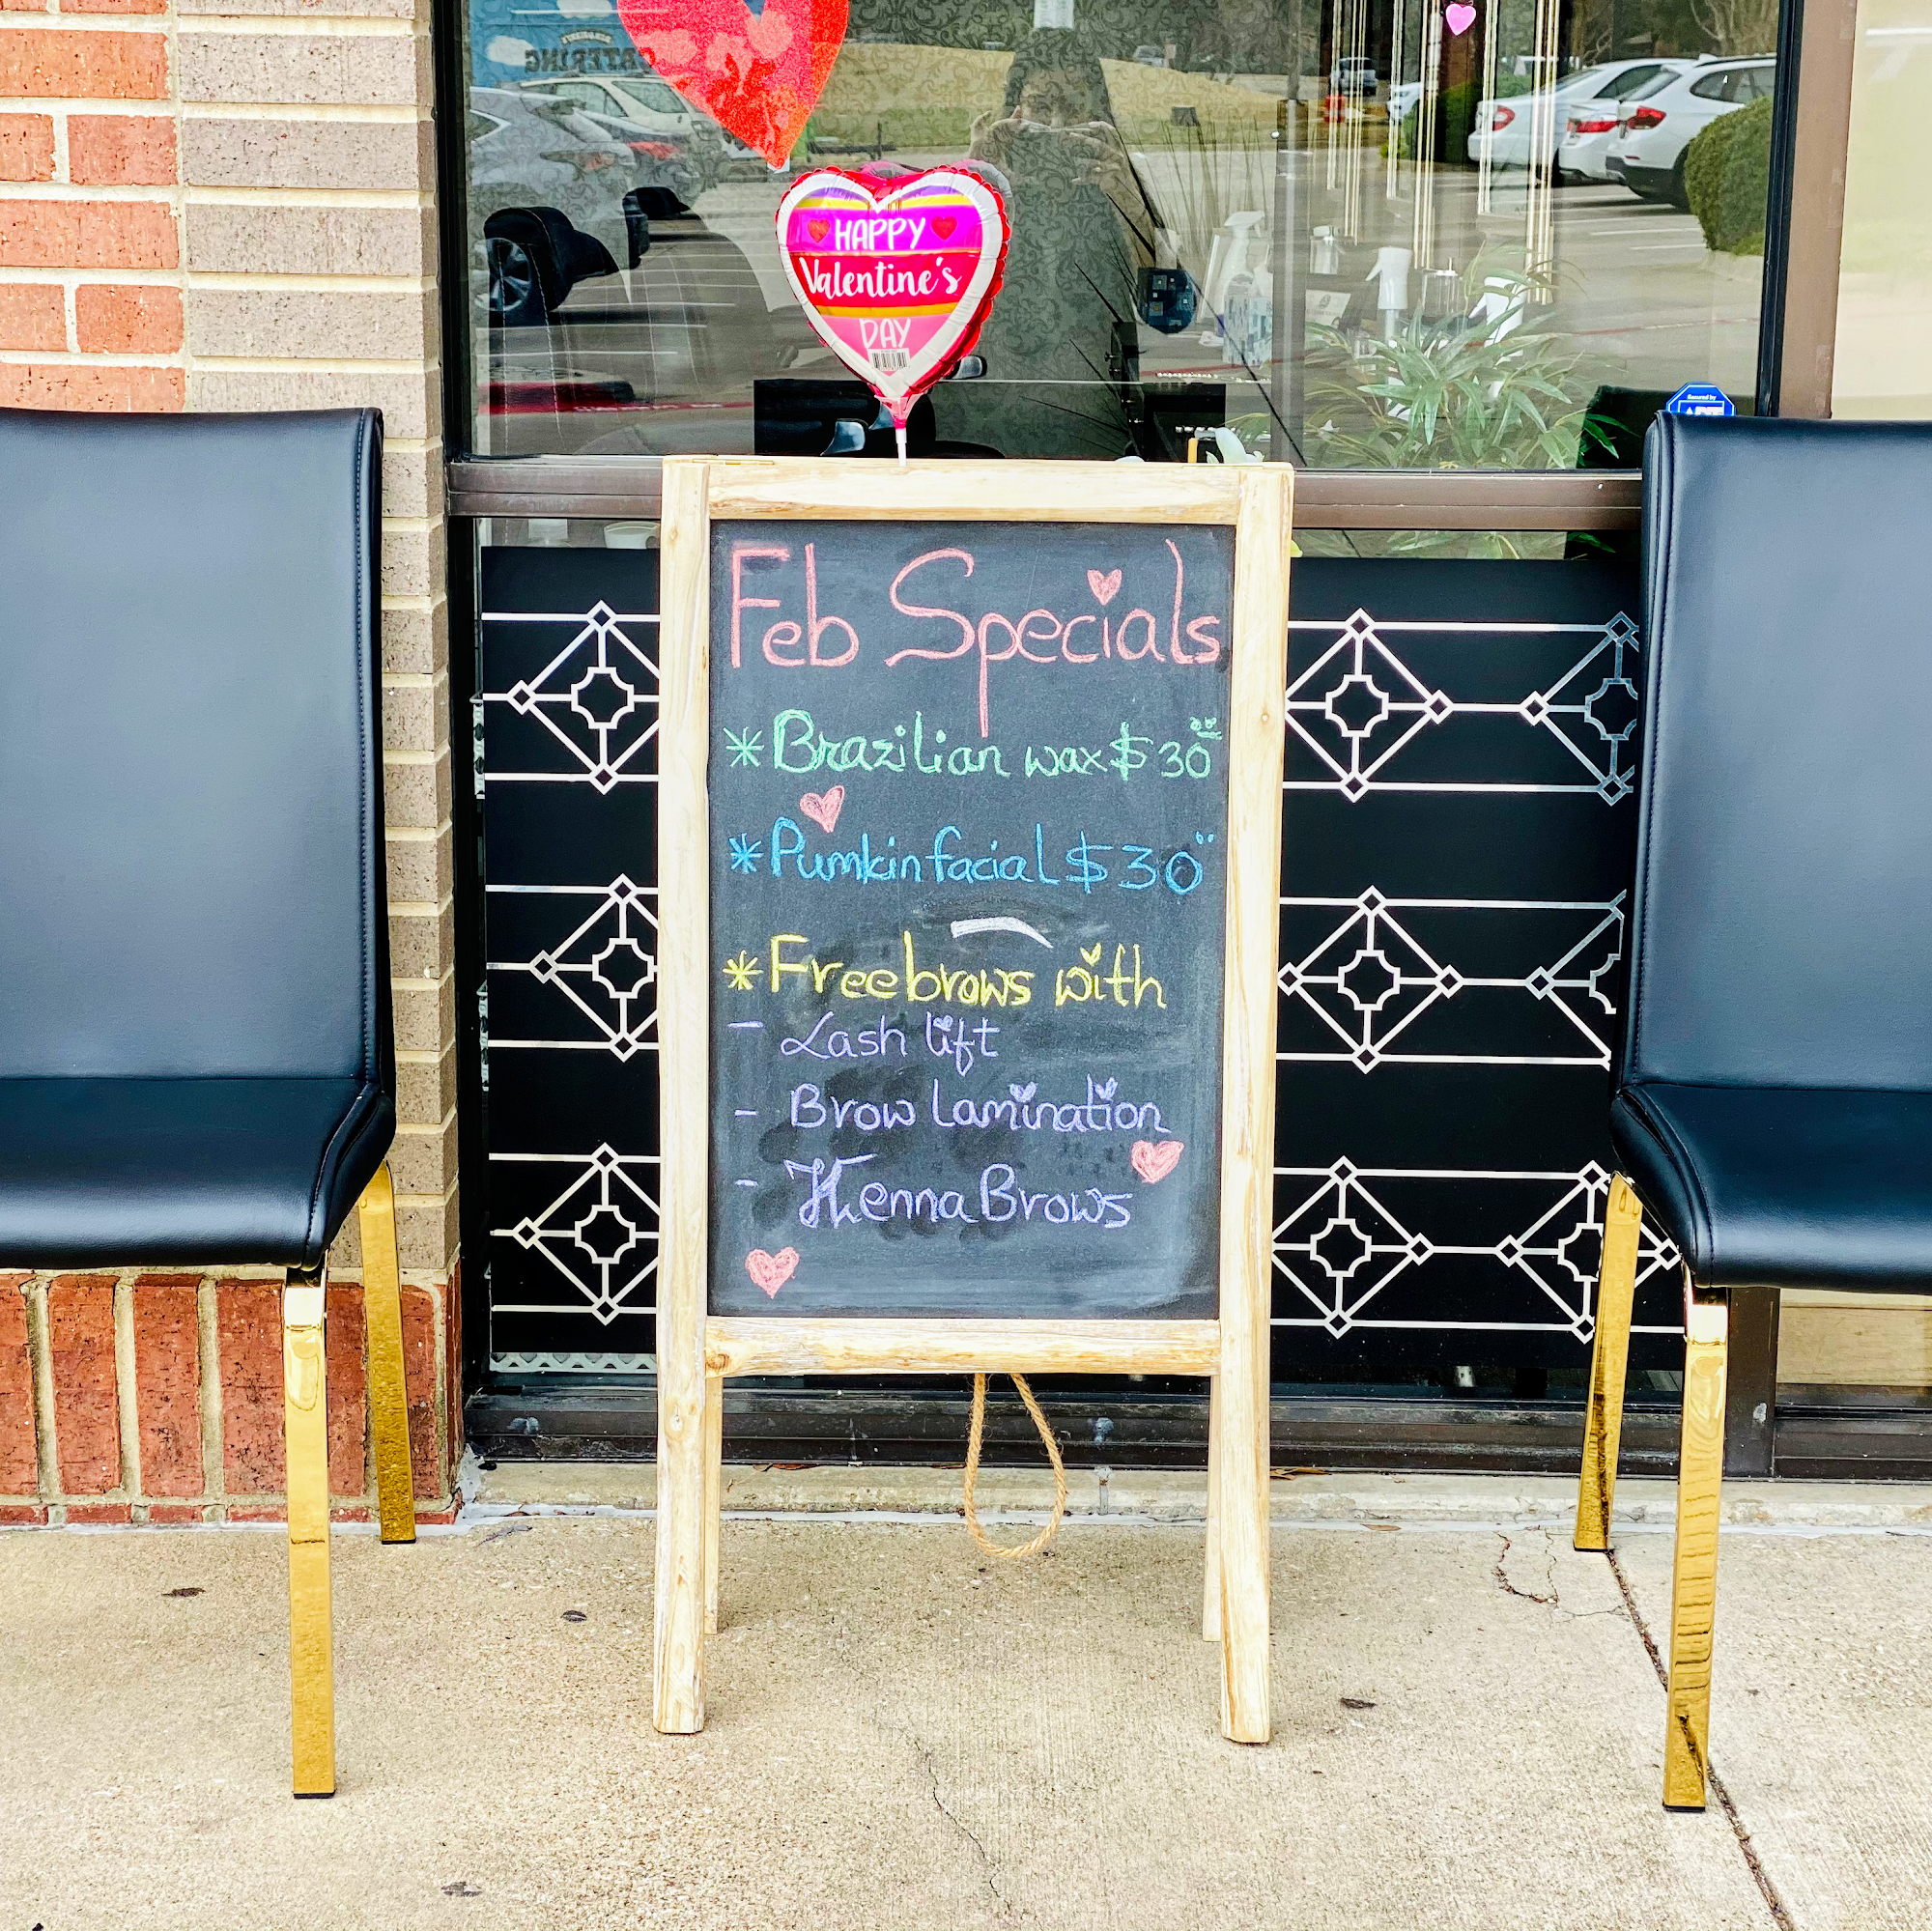 HAPPY
Valentine's
DAY
Secured by
ADT
Feb Specials
*Brazilian wax $30⁰⁰
*Pumkin facial $30"
*Free brows with
- Lash lift
- Brow lamination
- Henna Brows